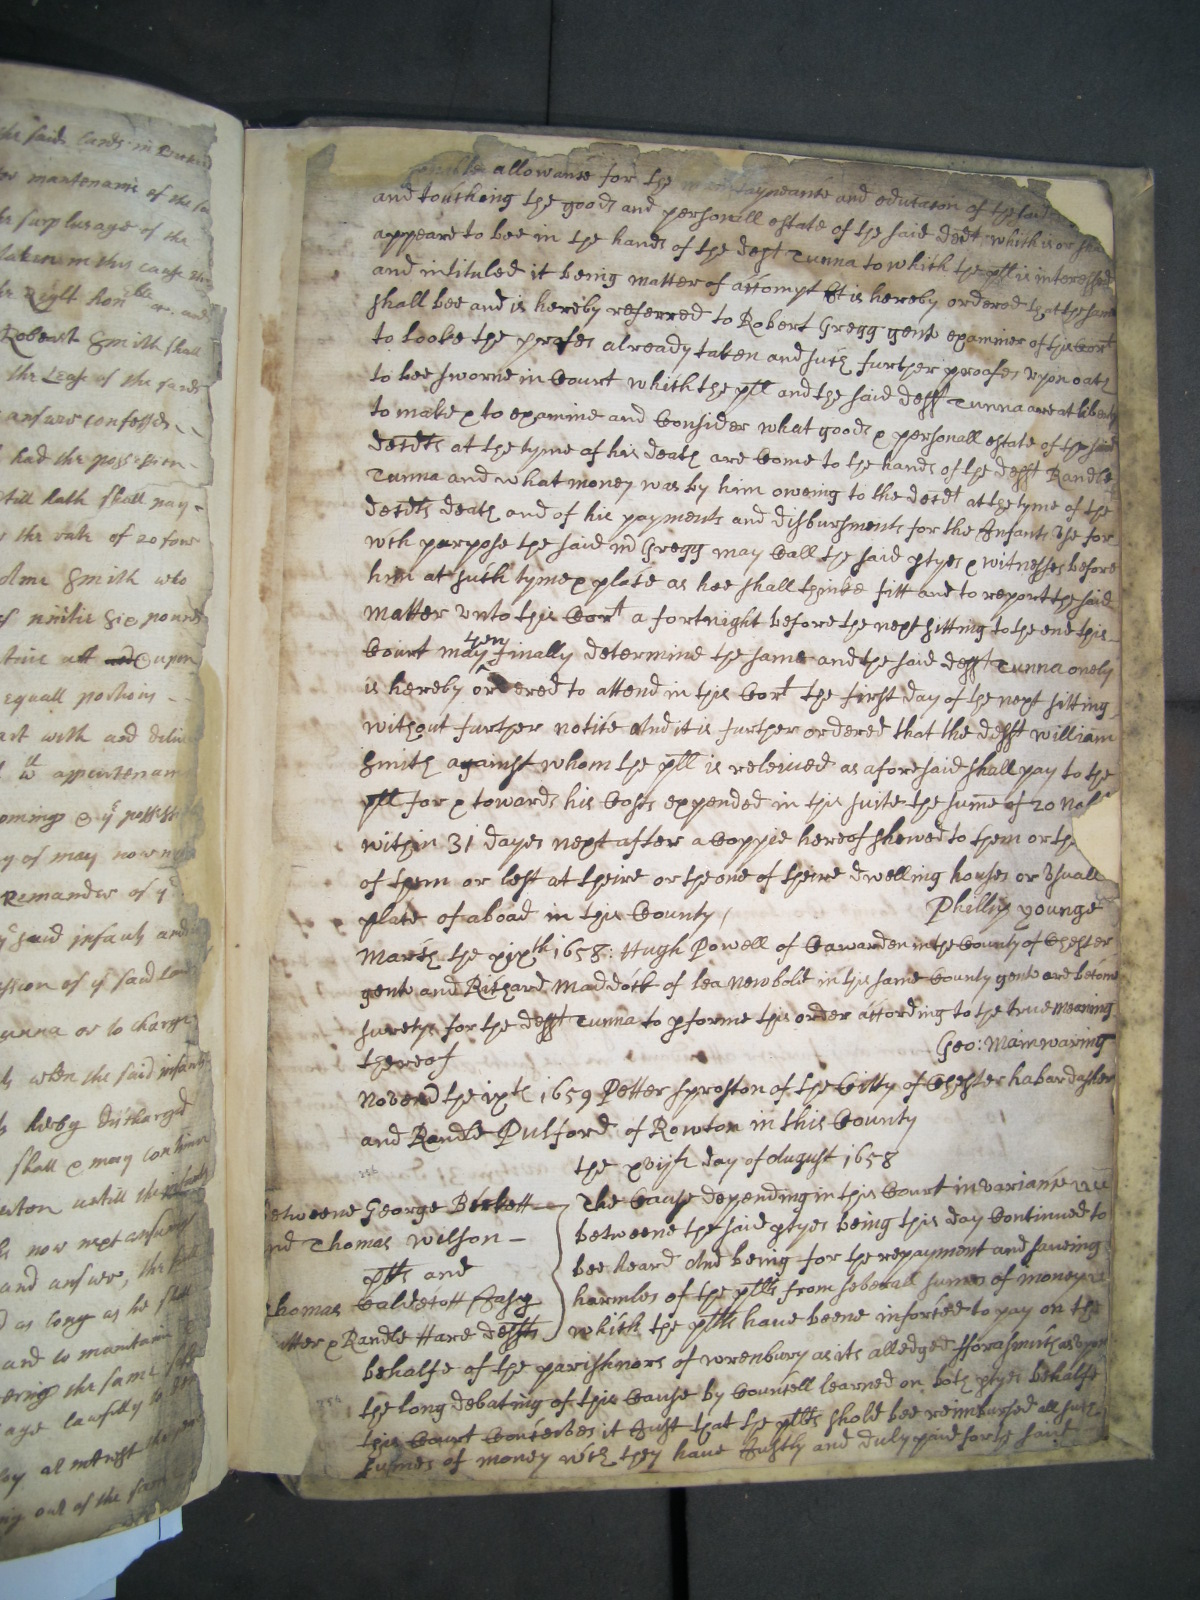 the said lands in
mantenance of the
surplusage of the
taken in this cause
Right honble
Robeart Smith shall
the Lease of the lands
answer confessed
had the possession
still hath shall pay
the rate of 20 four
Smith who
of nintie six pounds
upon
equall portions
with and deliver
appurtenan
possess
of may now
Remander of ye
said infants and
of ye said
unna or to charge
when the said infants
hereby discharged
shall & may continue
untill the infants
now next
and answer, the
as long as he shall
and to maintain
the same
age lawfully to
at interest the
out of the
allowance for the and educaton of the said
and touching the goods and personall estate of the said decdt which is or
appeare to bee in the hands of the deft Tunna to which the pll is interessed
and intituled it being matter of accompt It is hereby ordered that the same
shall bee and is hereby referred to Robert Gregg gent examiner of this Cort
to looke the profes already taken and such further proafes upon oath
to bee sworne in Court which the pll and the said defft Tunna are at liberty
to make & to examine and Consider what goods & personall estate of the said
decdts at the tyme of his death are Come to the hands of the defft Randle
Tunna and what money was by him oweing to the decdt at the tyme of the
decdts death and of his payments and disbursments for the Infants Use for
wch purpose the said mr Gregg may Call the said ptyes & witnesses before
him at such tyme & place as hee shall thinke fitt and to report the said
matter unto this Cort a fortnight before the next sitting to the end this
Court may then finally determine the same and the said defft Tunna onely
is hereby ordered to attend in this Cort the first day of the next sitting
without further notice And it is further ordered that the defft william
Smith against whom the pll is releived as aforesaid shall pay to the
pll for & towards his Costs expended in this suite the sume of 20 Nobls
within 31 dayes next after a Coppie hereof shewed to them or th
of them or left at theire or the one of theire dwelling houses or Usuall
place of aboad in this County / Phillip younge
March the xixth 1658: Hugh Powell of Hawarden in the County of Chester
gent and Richard Maddock of lea Newbold in the same County gent are become
suretys for the defft Tunna to pforme this order according to the true meaning
thereof Geo: Mainwaring
Novemb the ixth 1659 Petter Sproston of the Citty of Chester habardasher
and Randle Pulford of Rowton in this County
the xviijth day of August 1658
etweene George Beckett
nd Thomas Wilson
plts and
homas Caldecott
utter & Randle Hare deffts
The Cause depending in this Court in variance
betweene the said ptyes being this day Continued to
bee heard And being for the repayment and saveing
harmles of the pltts from severall sumes of money
which the pltts have beene inforced to pay on the
behalfe of the parishnors of wrenbury as its alledged fforasmuch as upon
the long debating of this Cause by Councell learned on both ptyes behalfe
this Court Conceives it Just that the pltts shold bee reimbursed all such
sumes of money wch they have Justly and duly paid for the said